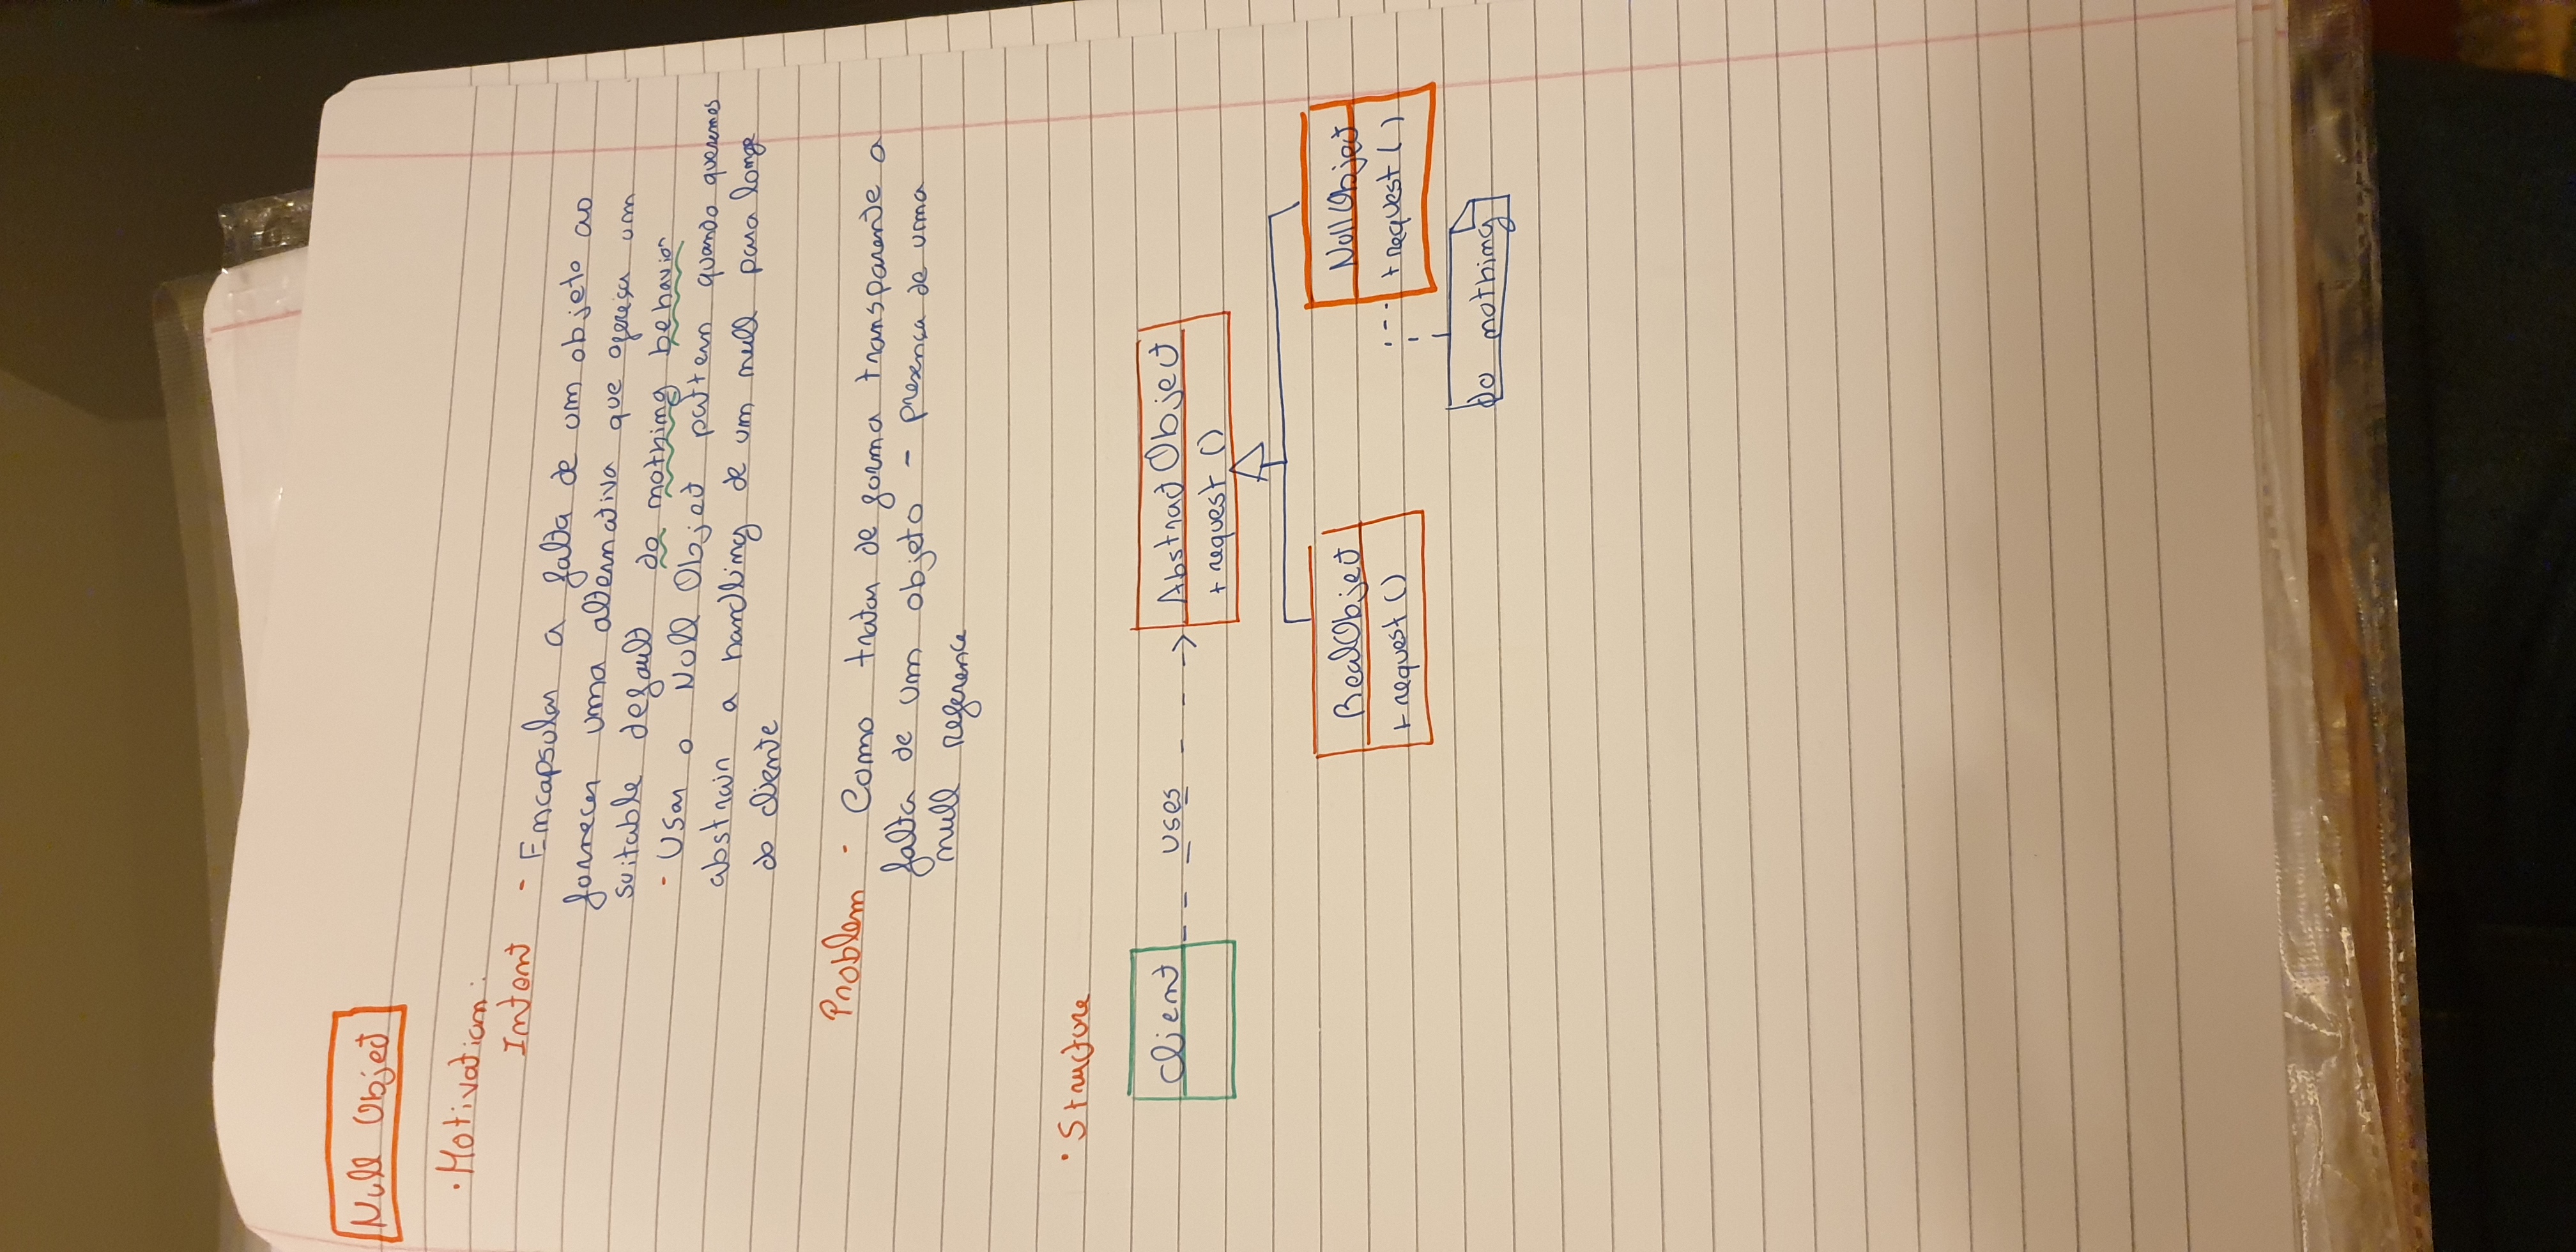 Null Object
• Motivation:
Intent - Encapsular a falta de um objeto ao
fornecer uma alternativa que ofereça um
suitable default do nothing behavior
- Usar o Null Object pattern quando queremos
abstrair a handling de um null para longe
do cliente
Problem - Como tratar de forma transparente a
falta de um objeto - presença de uma
null reference
• Structure
Client uses AbstractObject
+ request ()
RealObject NullObject
+ request () + request ()
Do nothing